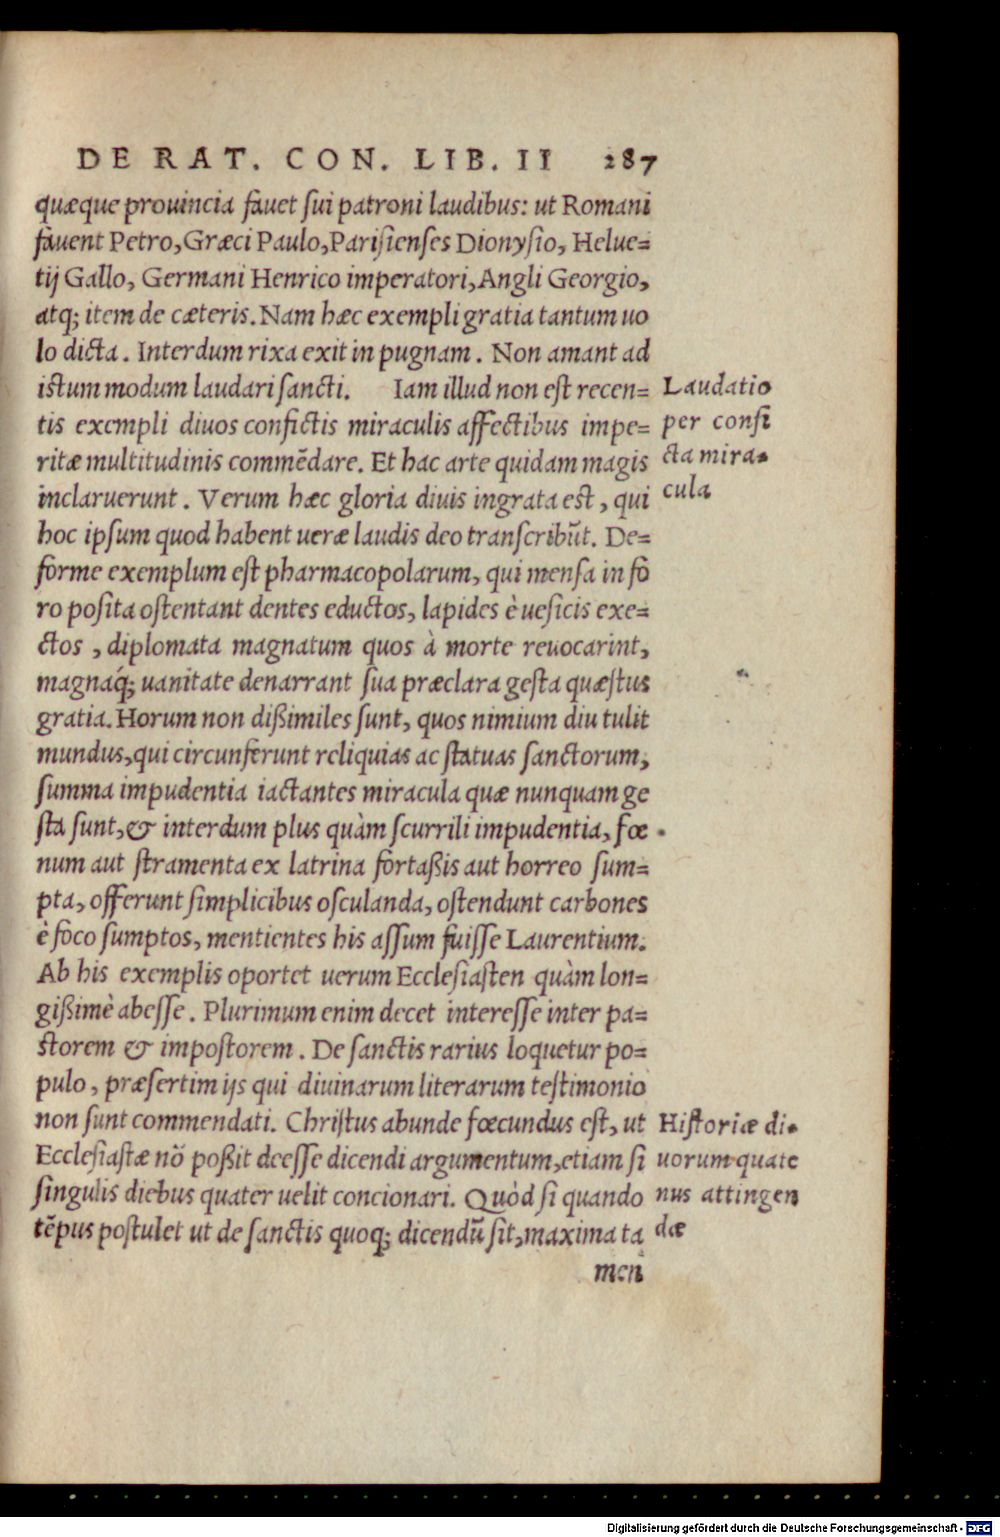 DE RAT. CON. LIB. II 287
quæque prouincia fauet sui patroni laudibus: ut Romani
fauent Petro, Græci Paulo, Parisienses Dionysio, Helue=
tij Gallo, Germani Henrico imperatori, Angli Georgio,
atq; item de cæteris. Nam hæc exempli gratia tantum uo
lo dicta. Interdum rixa exit in pugnam. Non amant ad
istum modum laudari sancti. Iam illud non est recen=
tis exempli diuos confictis miraculis affectibus impe=
ritæ multitudinis commẽdare. Et hac arte quidam magis
inclaruerunt. Verum hæc gloria diuis ingrata est, qui
hoc ipsum quod habent ueræ laudis deo transcribũt. De=
forme exemplum est pharmacopolarum, qui mensa in fo
ro posita ostentant dentes eductos, lapides è uesicis exe=
ctos, diplomata magnatum quos à morte reuocarint,
magnaq́; uanitate denarrant sua præclara gesta quæstus
gratia. Horum non dißimiles sunt, quos nimium diu tulit
mundus, qui circunferunt reliquias ac statuas sanctorum,
summa impudentia iactantes miracula quæ nunquam ge
sta sunt, & interdum plus quàm scurrili impudentia, fœ
num aut stramenta ex latrina fortaßis aut horreo sum=
pta, offerunt simplicibus osculanda, ostendunt carbones
è foco sumptos, mentientes his assum fuisse Laurentium.
Ab his exemplis oportet uerum Ecclesiasten quàm lon=
gißimè abesse. Plurimum enim decet interesse inter pa=
storem & impostorem. De sanctis rarius loquetur po=
pulo, præsertim ijs qui diuinarum literarum testimonio
non sunt commendati. Christus abunde fœcundus est, ut
Ecclesiastæ nõ poßit deesse dicendi argumentum, etiam si
singulis diebus quater uelit concionari. Quòd si quando
tẽpus postulet ut de sanctis quoq; dicendũ sit, maxima ta
men
Laudatio
per confi
cta mira-
cula
Historiæ di-
uorum quate
nus attingen
dæ
Digitalisierung gefördert durch die Deutsche Forschungsgemeinschaft - DFG